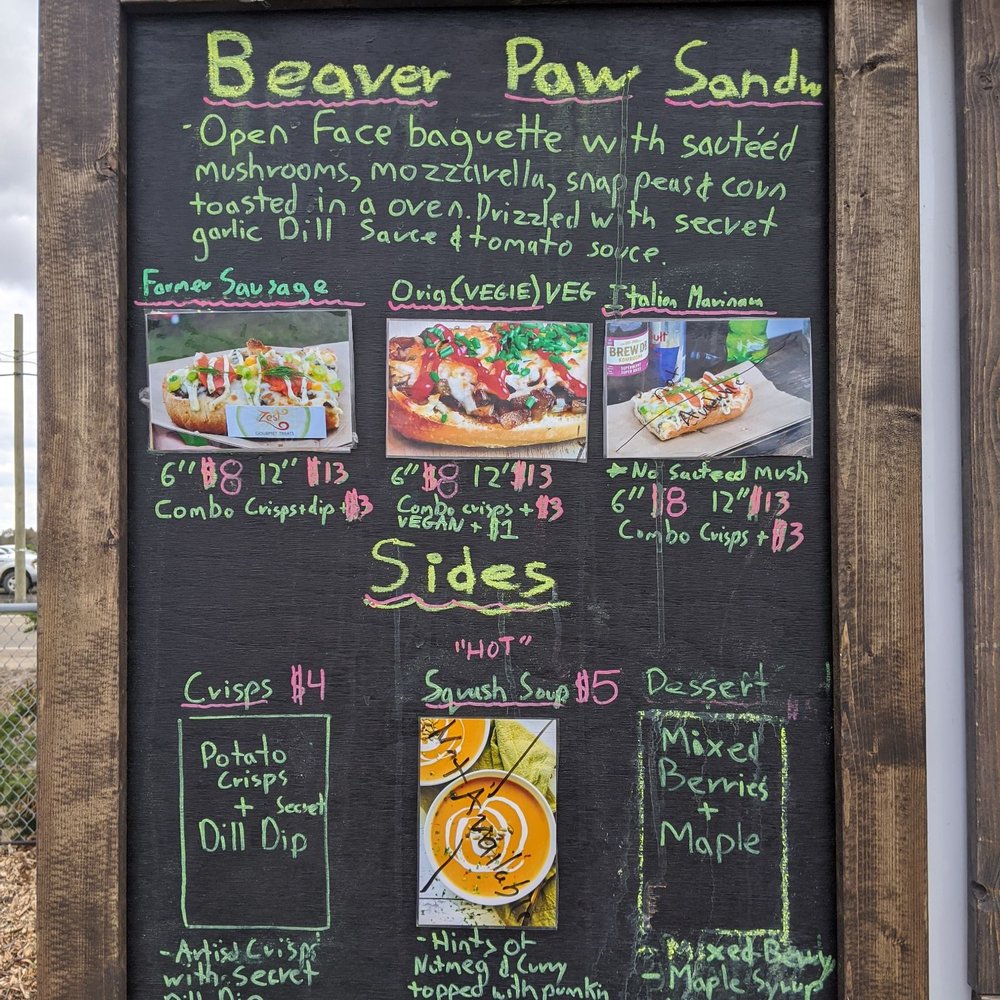 Beaver Paw Sandw
- Open Face baguette with sautééd
mushrooms, mozzarella, snap peas & corn
toasted in a oven. Drizzled with secret
garlic Dill Sauce & tomato sauce.
Farmer Sausage
Orig (VEGIE) VEG
Italian Marinara
Zest
GOURMET TREATS
BREW DR
KOMBUCHA
SUPERBERRY
6" $8 12" $13
Combo Crisps+dip +$3
6" $8 12" $13
Combo crisps + $3
VEGAN + $1
* No Sauteed Mush
6" $8 12" $13
Combo Crisps + $3
Sides
"HOT"
Crisps $4
Potato
Crisps
+ Secret
Dill Dip
- Artisa Crisps
with Secret
Dill Dip
Squash Soup $5
- Hints of
Nutmeg & Curry
topped with pumkin
Dessert
Mixed
Berries
+
Maple
- Mixed Berry
- Maple Syrup